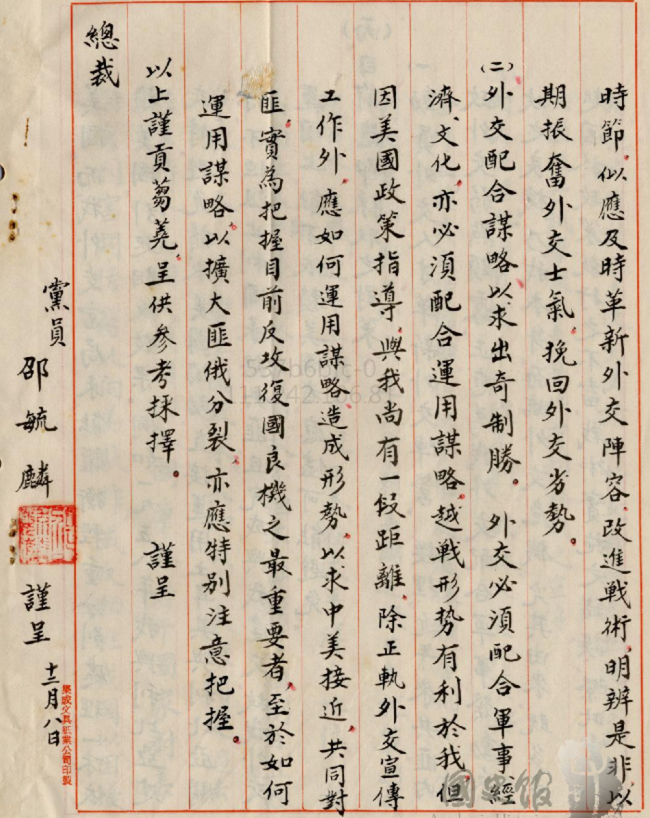 時節、似應及時革新外交陣容、改進戰術、明辨是非、以
期振奮外交士氣、挽回外交劣勢。
(二)外交配合謀略以求出奇制勝。外交必須配合軍事經
濟、文化、亦必須配合運用謀略、越戰形勢有利於我、但
因美國政策指導、與我尚有一段距離、除正軌外交宣傳
工作外、應如何運用謀略、造成形勢、以求中美接近、共同對
匪、實為把握目前反攻復國良機之最重要者、至於如何
運用謀略、以擴大匪俄分裂、亦應特別注意把握。
以上謹貢芻蕘、呈供參考採擇。 謹呈
總裁
黨員 邵毓麟 謹呈 十二月八日
集成文具紙業公司印製
國史館